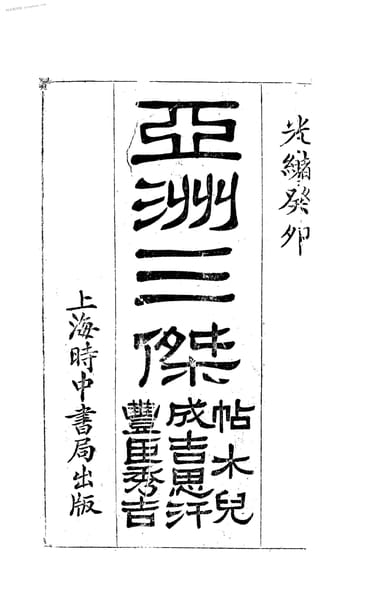 光緒癸卯
亞洲三傑
帖木兒
成吉思汗
豐臣秀吉
上海時中書局出版